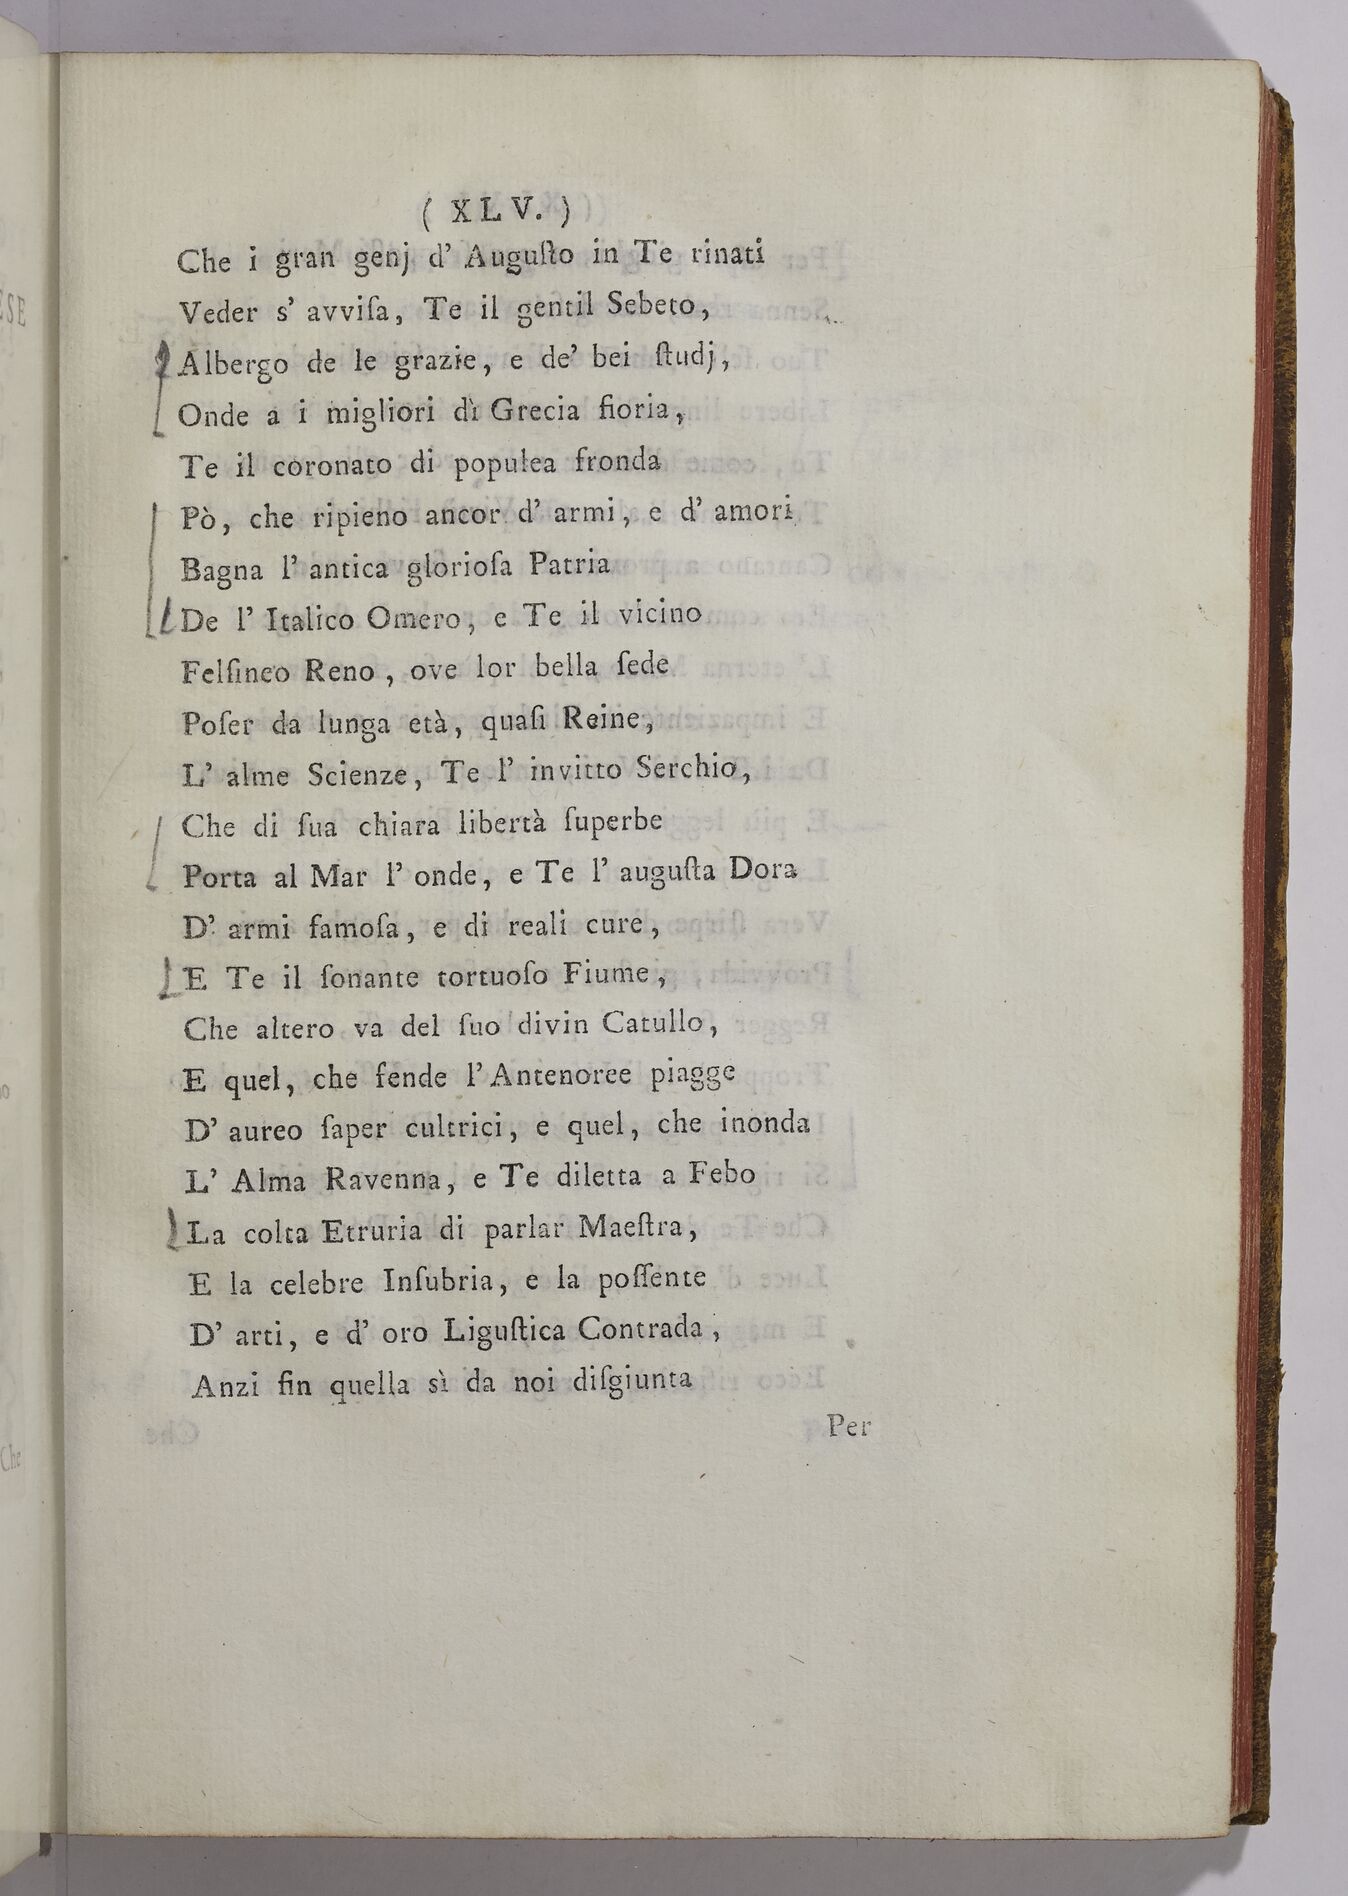 ( XLV. )
Che i gran genj d' Auguſto in Te rinati
Veder s' avviſa, Te il gentil Sebeto,
Albergo de le grazie, e de' bei ſtudj,
Onde a i migliori dì Grecia fioria,
Te il coronato di populea fronda
Pò, che ripieno ancor d' armi, e d' amori
Bagna l' antica glorioſa Patria
De l' Italico Omero, e Te il vicino
Felſineo Reno, ove lor bella ſede
Poſer da lunga età, quaſi Reine,
L' alme Scienze, Te l' invitto Serchio,
Che di ſua chiara libertà ſuperbe
Porta al Mar l' onde, e Te l' auguſta Dora
D' armi famoſa, e di reali cure,
E Te il ſonante tortuoſo Fiume,
Che altero va del ſuo divin Catullo,
E quel, che fende l' Antenoree piagge
D' aureo ſaper cultrici, e quel, che inonda
L' Alma Ravenna, e Te diletta a Febo
La colta Etruria di parlar Maeſtra,
E la celebre Inſubria, e la poſſente
D' arti, e d' oro Liguſtica Contrada,
Anzi fin quella sì da noi diſgiunta
Per
ESE
Che